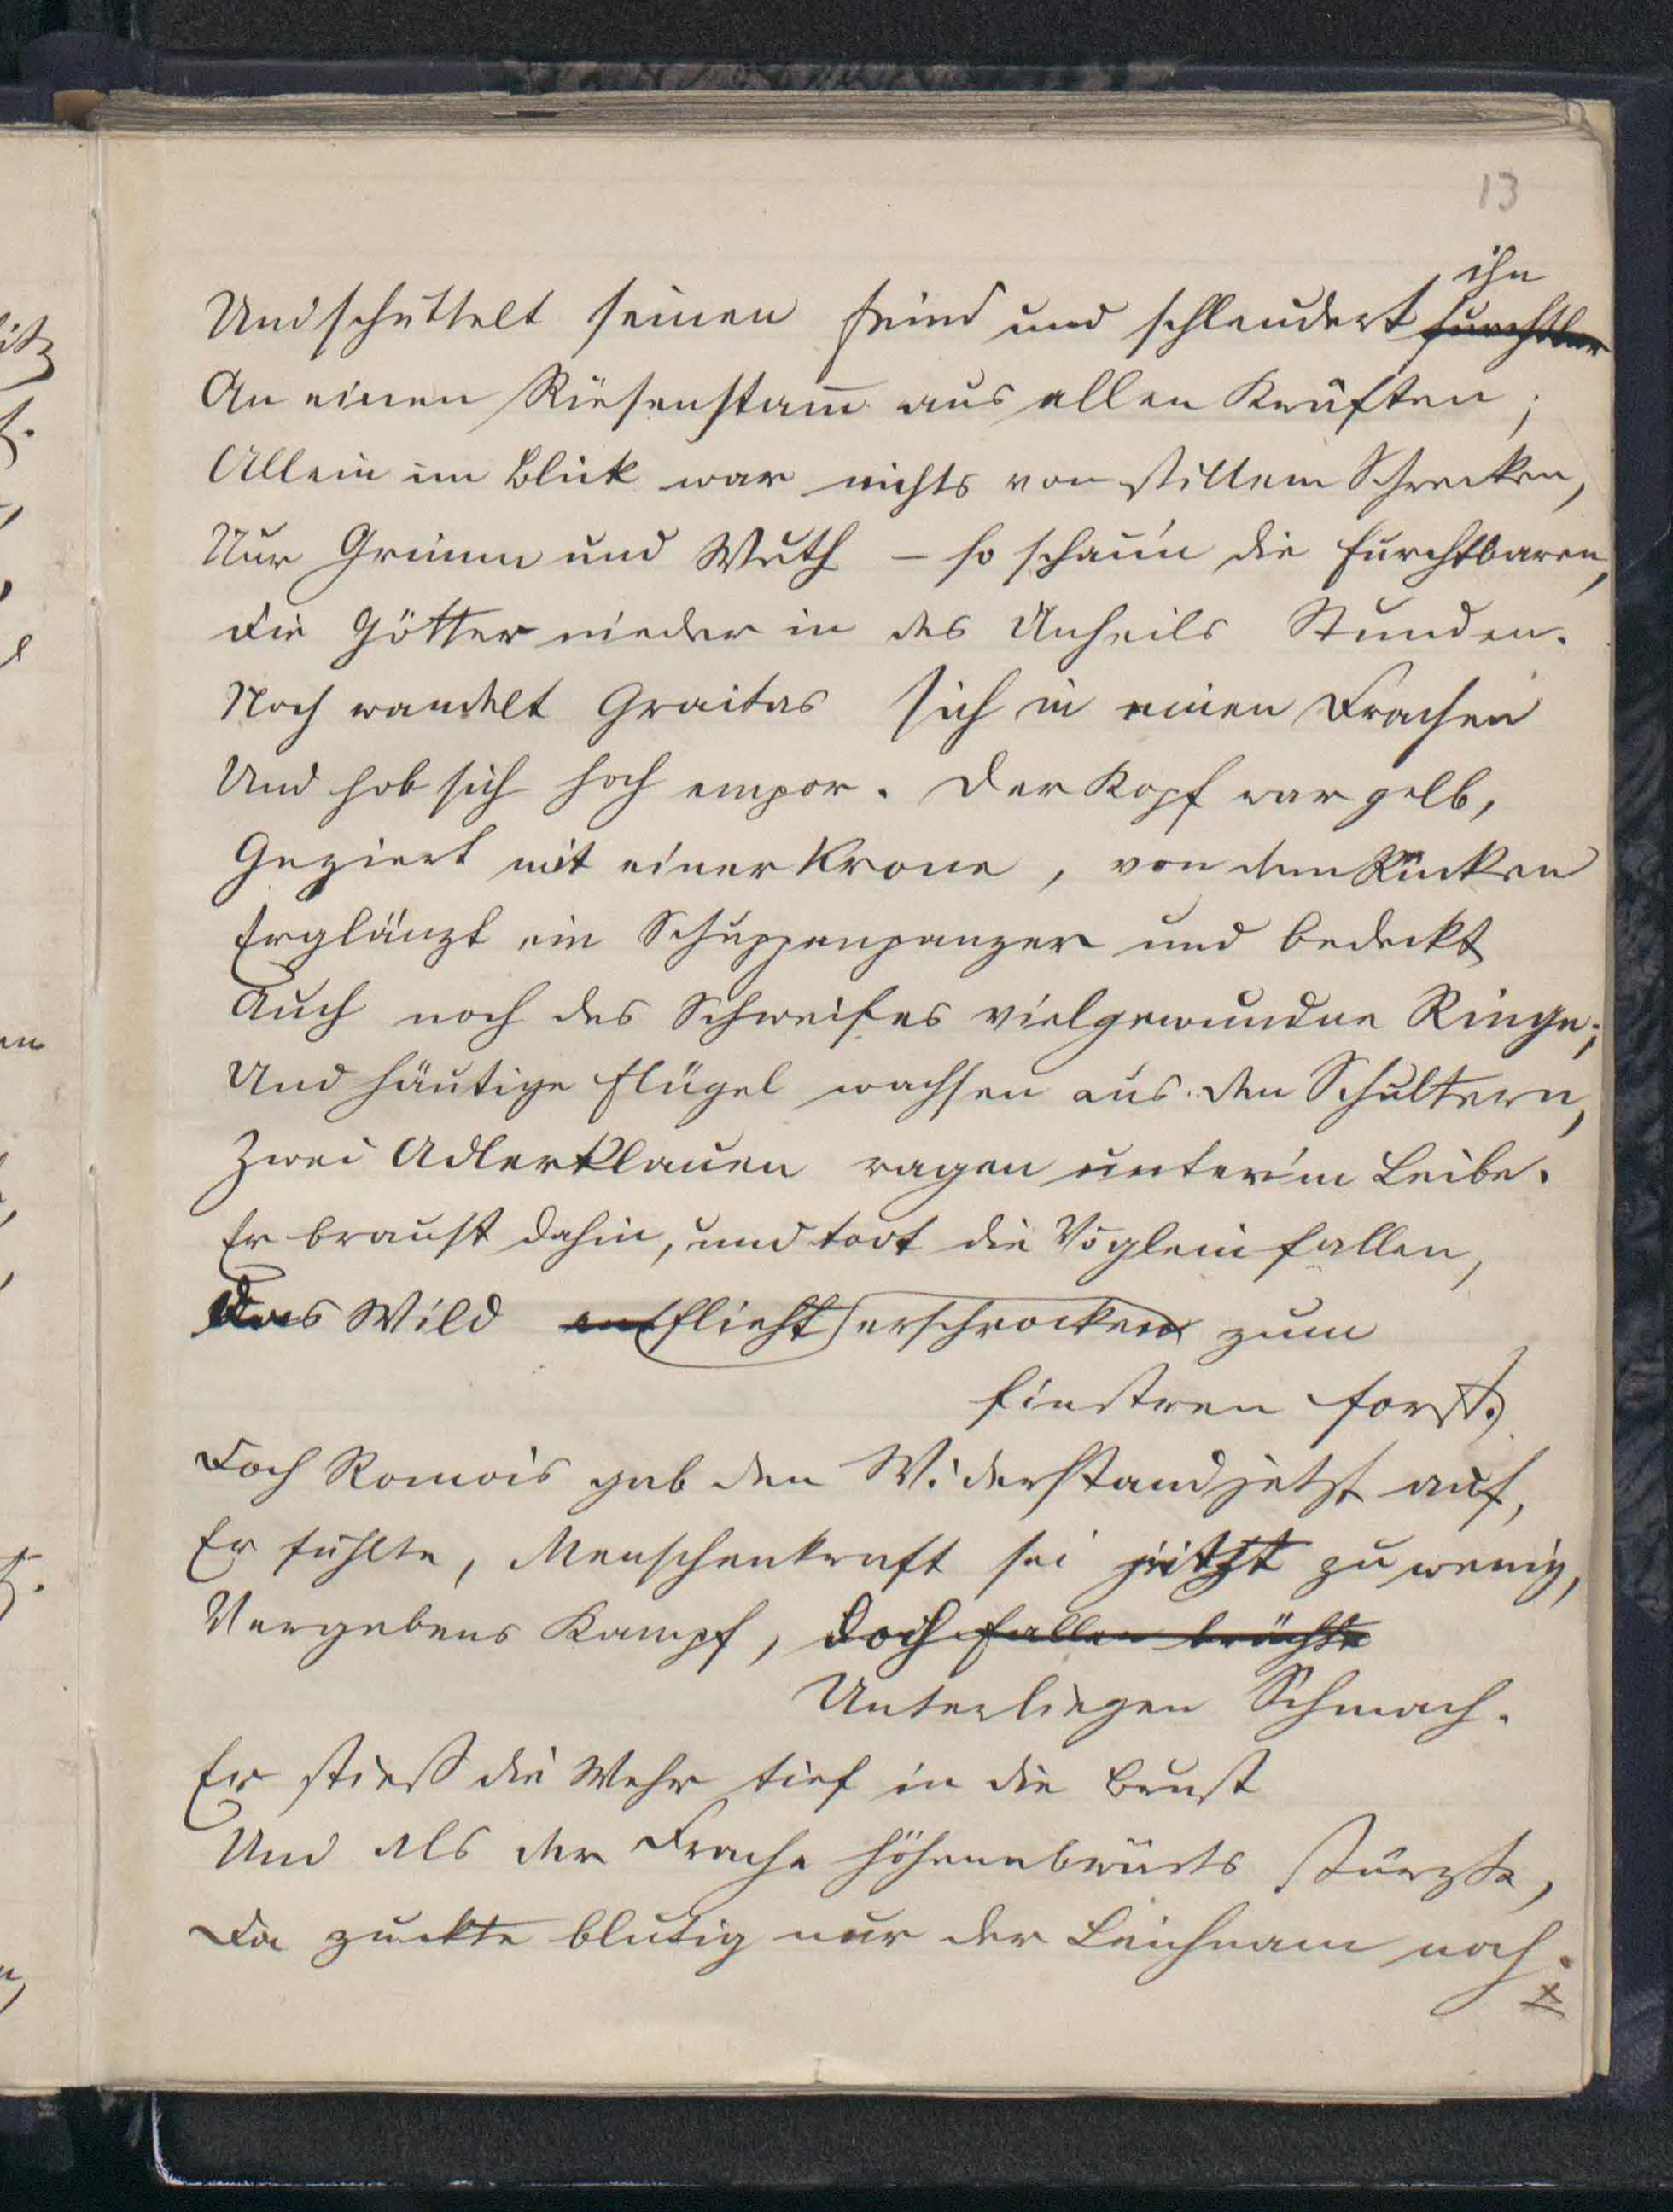 13
ihn
Und schüttelt seinen Feind und schleudert furchtbar
An einen Riesenstam̄ aus allen Kräften;
Allein im Blick war nichts von stillem Schrecken,
Nur Grimm und Wuth – so schau'n die Furchtbaren,
Die Götter nieder in des Unheils Stunden.
Noch wandelt Graitas sich in einen Drachen
Und hob sich hoch empor. Der Kopf war gelb,
Geziert mit einer Krone, von dem Rücken
Erglänzt ein Schuppenpanzer und bedeckt
Auch noch des Schweifes vielgewundne Ringe;
Und häutige Flügel wachsen aus den Schultern,
Zwei Adlerklauen ragen unter'm Leibe.
Er braust dahin, und todt die Vöglein fallen,
Das Wild entflieht erschrocken zum
finstren Forst.
Doch Romois gab den Widerstand jetzt auf,
Er fühlte, Menschenkraft sei jetzt zu wenig,
Vergebens Kampf, doch fallen brächte
Unterliegen Schmach.
Er stieß die Wehr tief in die Brust
Und als der Drache höhenabwärts stürzte,
Da zuckte blutig nur der Leichnam noch.